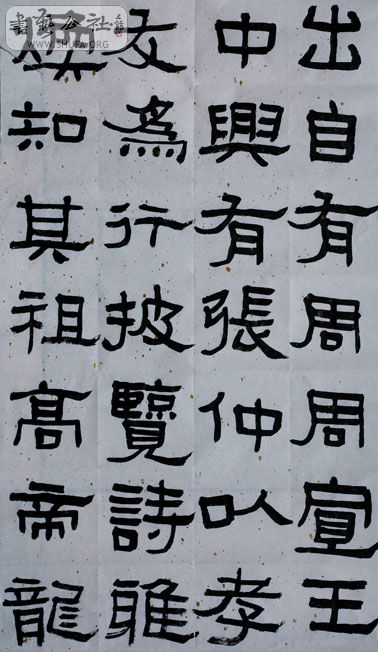 出自有周周宣王
中興有張仲以孝
友爲行披覽詩雅
煥知其祖高帝龍
書藝公社
WWW.SHUFA.ORG